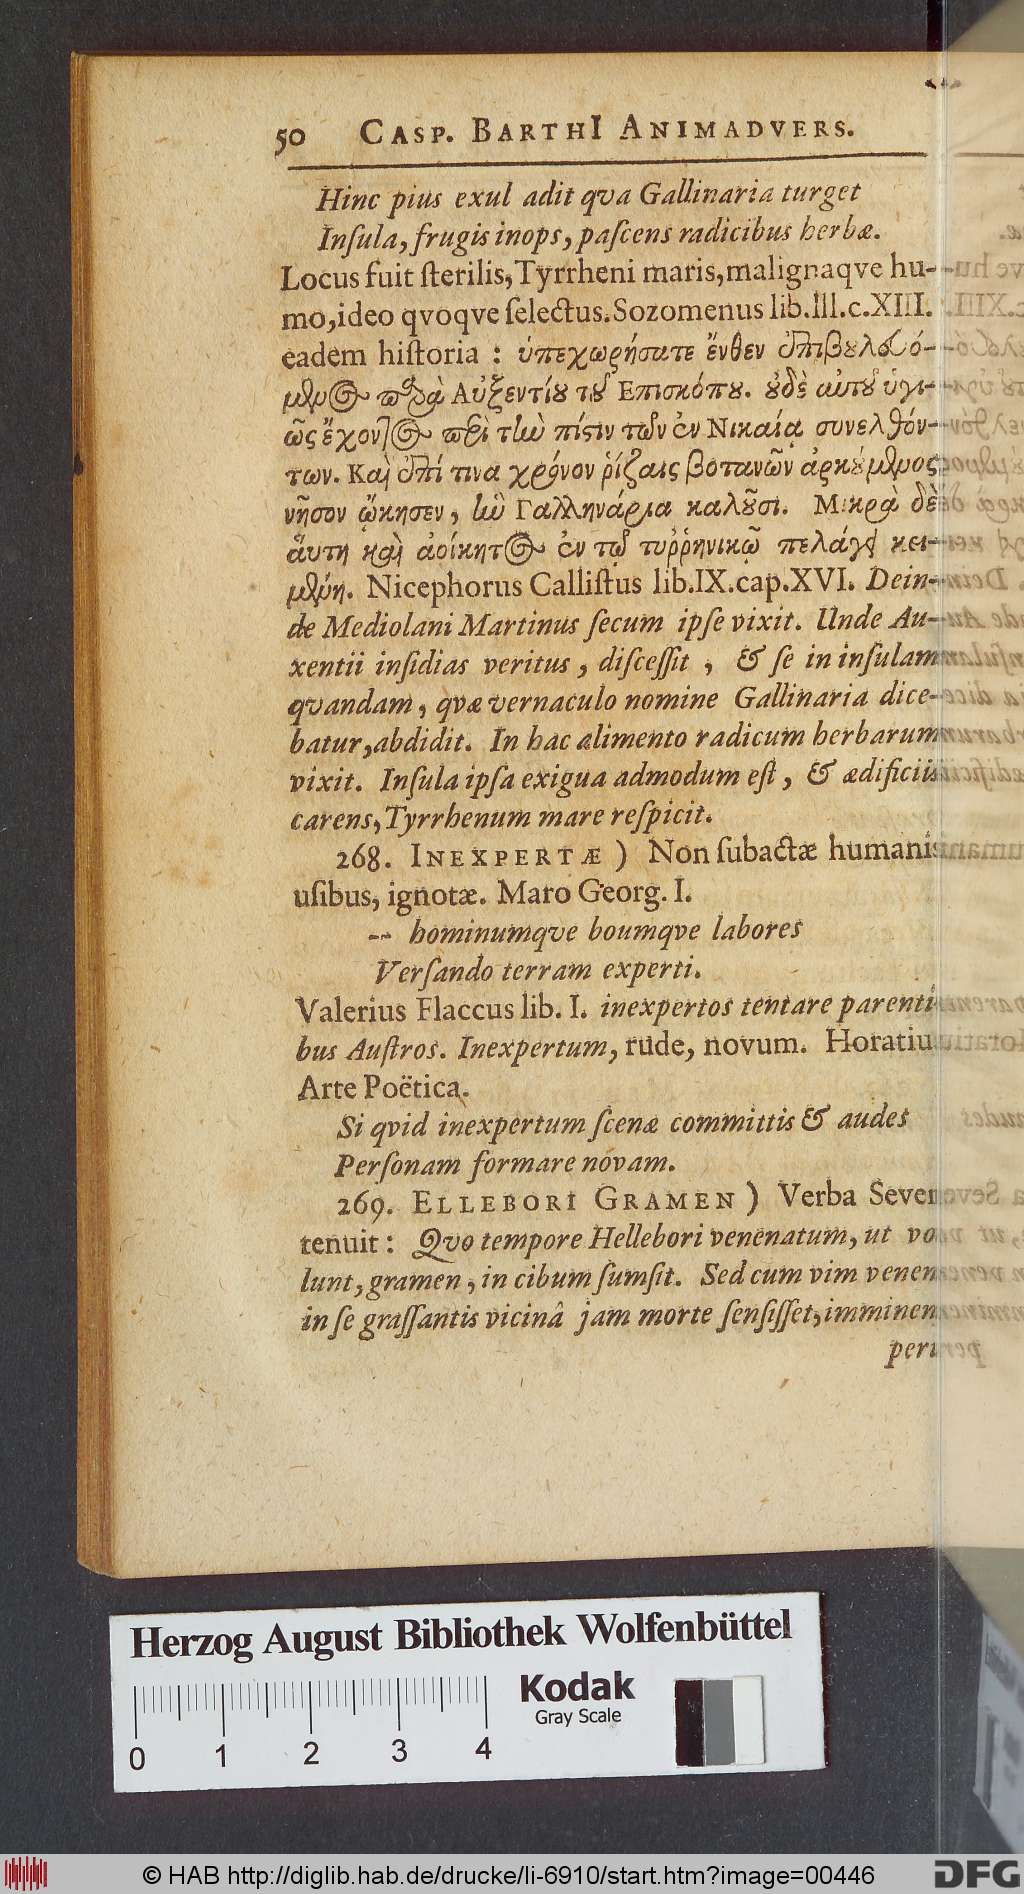 50 CASP. BARTHI ANIMADVERS.
Hinc pius exul adit qva Gallinaria turget
Inſula, frugis inops, paſcens radicibus herbæ.
Locus fuit ſterilis, Tyrrheni maris, malignaqve hu-
mo, ideo qvoqve ſelectus. Sozomenus lib. III. c. XIII.
eadem hiſtoria : ὑπεχωρήσατε ἔνθεν ἐπιβουλευό-
μενος παρὰ Αὐξεντίου τοῦ Ἐπισκόπου. οὐδὲ αὐτοῦ ὑγι-
ῶς ἔχοντος περὶ τὴν πίστιν τῶν ἐν Νικαίᾳ συνελθόν-
των. Καὶ ἐπί τινα χρόνον ῥίζαις βοτανῶν ἀρκούμενος
νῆσον ᾤκησεν, ἣν Γαλληνάρια καλοῦσι. Μικρὰ δὲ
ἅυτη καὶ ἀοίκητος ἐν τῷ τυῤῥηνικῷ πελάγει κει-
μένη. Nicephorus Calliſtus lib. IX. cap. XVI. Dein-
de Mediolani Martinus ſecum ipſe vixit. Unde Au-
xentii inſidias veritus, diſceſſit, & ſe in inſulam
qvandam, qvæ vernaculo nomine Gallinaria dice-
batur, abdidit. In hac alimento radicum herbarum
vixit. Inſula ipſa exigua admodum eſt, & ædificiis
carens, Tyrrhenum mare reſpicit.
268. INEXPERTÆ ) Non ſubactæ humanis
uſibus, ignotæ. Maro Georg. I.
-- hominumqve boumqve labores
Verſando terram experti.
Valerius Flaccus lib. I. inexpertos tentare parenti
bus Auſtros. Inexpertum, rude, novum. Horatiu
Arte Poëtica.
Si qvid inexpertum ſcenæ committis & audes
Perſonam formare novam.
269. ELLEBORI GRAMEN ) Verba Sever
tenuit : Qvo tempore Hellebori venenatum, ut vo
lunt, gramen, in cibum ſumſit. Sed cum vim venen
in ſe graſſantis vicinâ jam morte ſenſiſſet, imminen
peri
Herzog August Bibliothek Wolfenbüttel
Kodak
Gray Scale
0 1 2 3 4
© HAB http://diglib.hab.de/drucke/li-6910/start.htm?image=00446
DFG